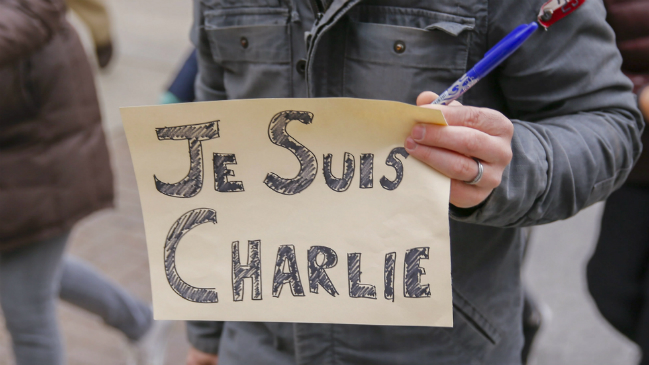 Je Suis
Charlie